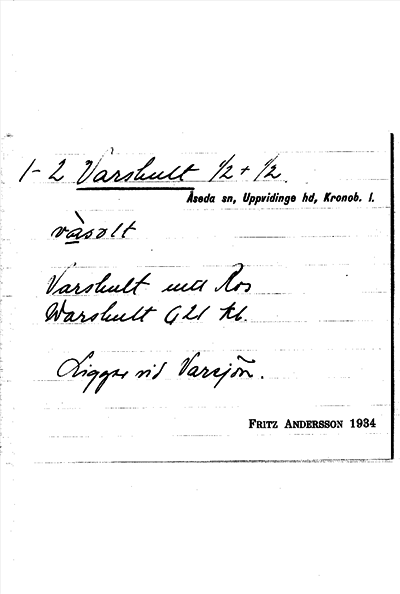 1-2 Varshult 1/2 + 1/2.
Åseda sn, Uppvidinge hd, Kronob. l.
vàsɒlt
Varshult Ros
Warshult G 21 kb.
Ligger vid Varsjön.
FRITZ ANDERSSON 1934